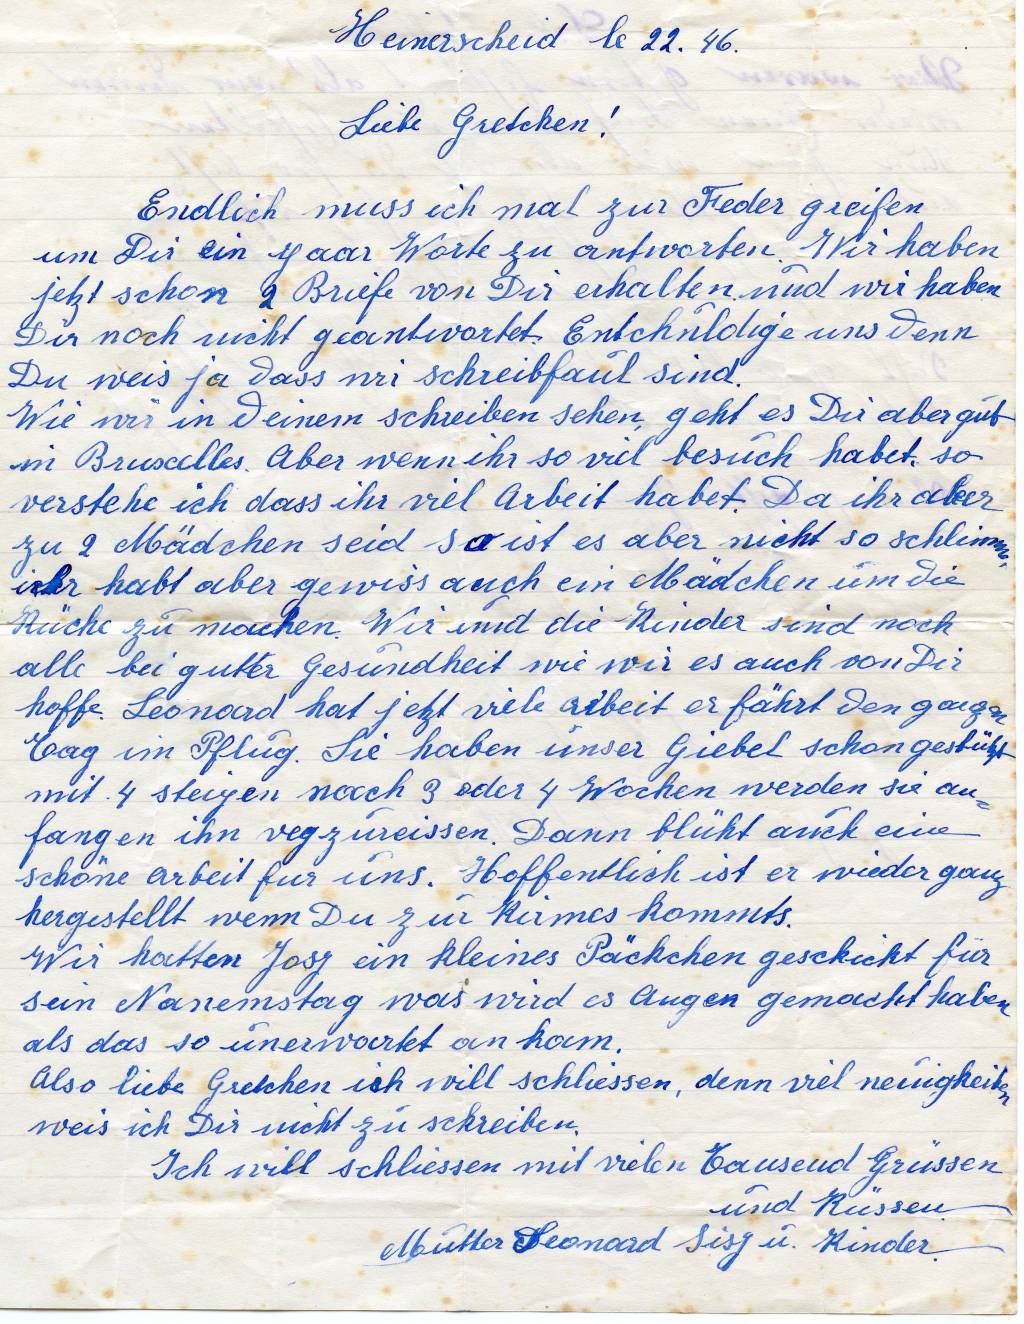 Heinerscheid le 22. 46.
Liebe Gretchen!
Endlich muss ich mal zur Feder greifen
um Dir ein paar Worte zu antworten. Wir haben
jetzt schon 2 Briefe von Dir erhalten und wir haben
Dir noch nicht geantwortet. Entchuldige uns denn
Du weis ja dass wir schreibfaul sind.
Wie wir in deinem schreiben sehen, geht es Dir aber gut
in Bruxelles. Aber wenn ihr so viel besuch habet, so
verstehe ich dass ihr viel Arbeit habet. Da ihr aber
zu 2 Mädchen seid so ist es aber nicht so schlimm,
ihr habt aber gewiss auch ein Mädchen um die
Küche zu machen. Wir und die Kinder sind noch
alle bei gutter Gesundheit wie wir es auch von Dir
hoffe. Leonard hat jetzt viele arbeit er fährt den ganzen
Tag im Pflug. Sie haben unser Giebel schon gestützt
mit 4 steigen nach 3 oder 4 Wochen werden sie an=
fangen ihn vegzureissen. Dann blüht auch eine
schöne Arbeit fur uns. Hoffentlich ist er wieder ganz
hergestellt wenn Du zur Kirmes kommts.
Wir hatten Josy ein kleines Päckchen geschickt für
sein Nanemstag was wird es Augen gemacht haben
als das so unerwartet an kam.
Also liebe Gretchen ich will schliessen, denn viel neuigkeiten
weis ich Dir nicht zu schreiben.
Ich will schliessen mit vielen Tausend Grüssen
und Küssen
Mutter Leonard Sisy u. Kinder.